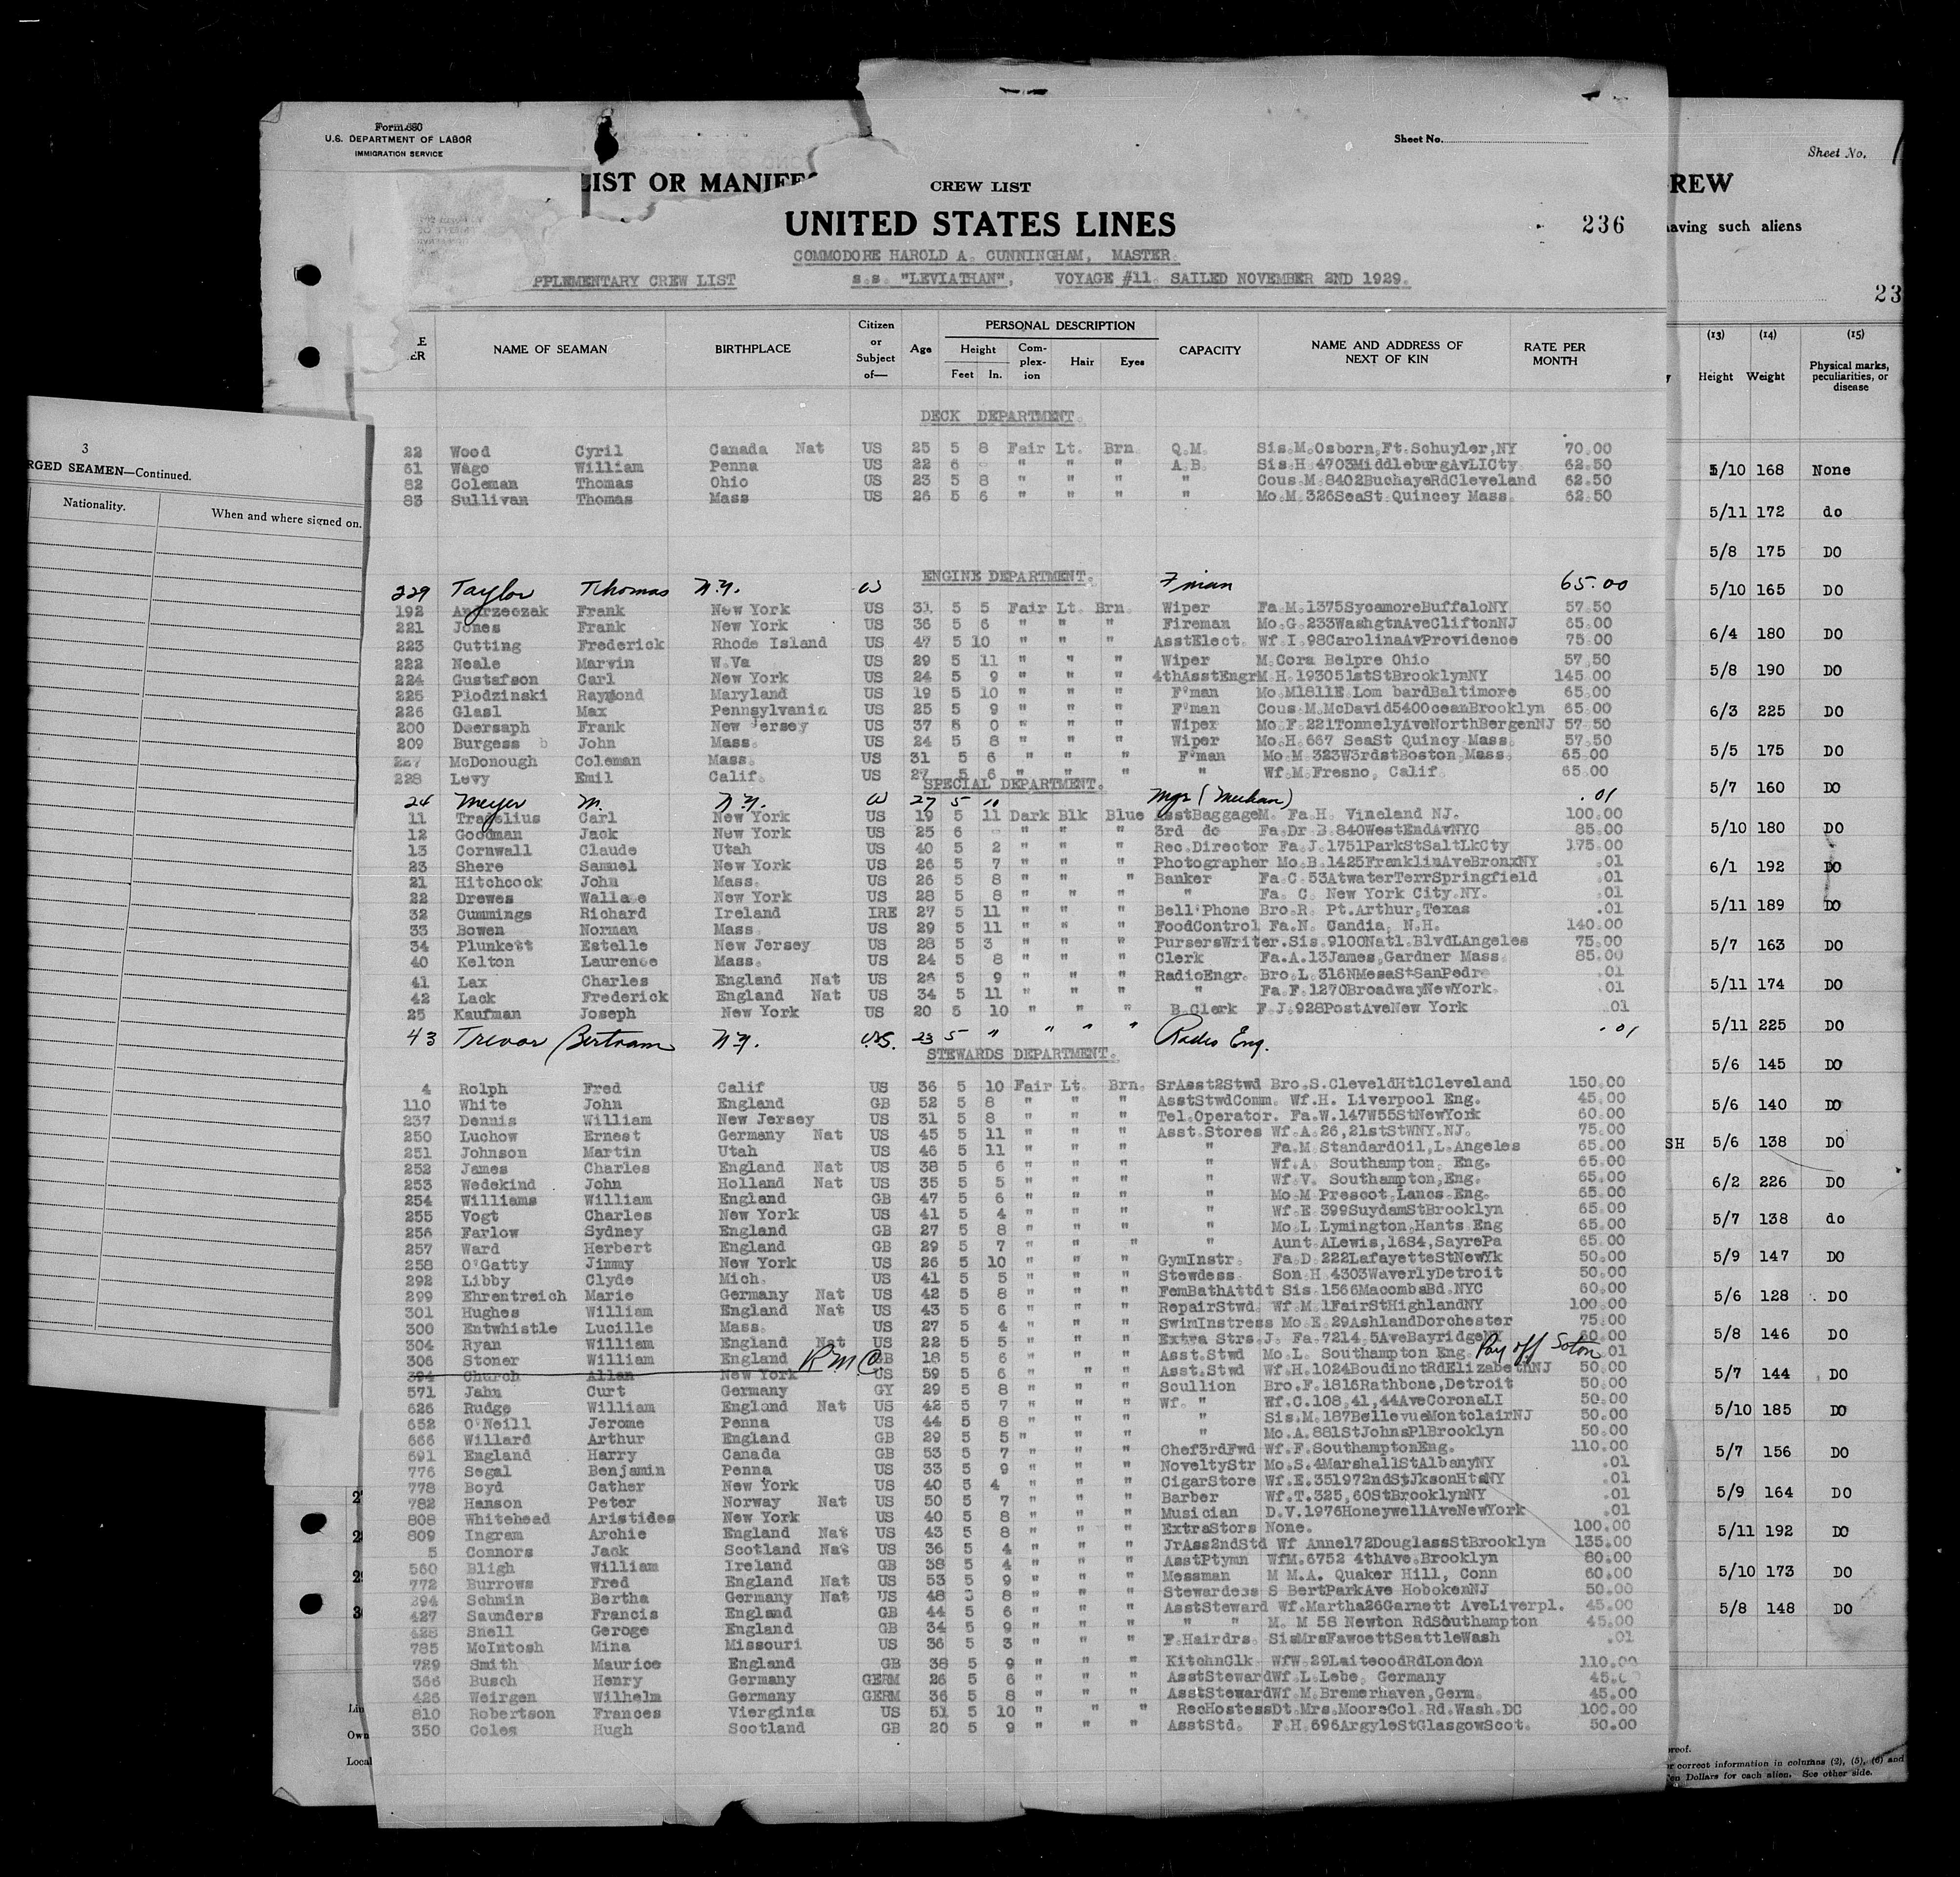 Form 680
U.S. DEPARTMENT OF LABOR
IMMIGRATION SERVICE
Sheet No.
Sheet No.
LIST OR MANIFES
CREW LIST
REW
UNITED STATES LINES
236
aving such aliens
COMMODORE HAROLD A. CUNNINGHAM, MASTER.
PPLEMENTARY CREW LIST s.s. "LEVIATHAN", VOYAGE #11. SAILED NOVEMBER 2ND 1929.
23
NAME OF SEAMAN BIRTHPLACE Citizen or Subject of— Age PERSONAL DESCRIPTION Height Feet In. Complexion Hair Eyes CAPACITY NAME AND ADDRESS OF NEXT OF KIN RATE PER MONTH
(13) (14) (15)
Height Weight Physical marks, peculiarities, or disease
3
RGED SEAMEN—Continued.
Nationality. When and where signed on.
DECK DEPARTMENT.
22 Wood Cyril Canada Nat US 25 5 8 Fair Lt. Brn. Q.M. Sis.M.Osborn,Ft.Schuyler,NY 70.00
61 Wago William Penna US 22 6 - " " " A.B. Sis.H.4703MiddleburgAvLICty 62.50
82 Coleman Thomas Ohio US 23 5 8 " " " " Cous.M.8402BuchayeRdCleveland 62.50
83 Sullivan Thomas Mass US 26 5 6 " " " " Mo.M.326SeaSt.Quincey Mass. 62.50
ENGINE DEPARTMENT.
229 Taylor Thomas N.Y. US F'man 65.00
192 Andrzeozak Frank New York US 31 5 5 Fair Lt. Brn. Wiper Fa.M.1375SycamoreBuffaloNY 57.50
221 Jones Frank New York US 36 5 6 " " " Fireman Mo.G.233WashgtnAveCliftonNJ 65.00
223 Cutting Frederick Rhode Island US 47 5 10 " " " AsstElect. Wf.I.98CarolinaAvProvidence 75.00
222 Neale Marvin W.Va US 29 5 11 " " " Wiper M.Cora Belpre Ohio 57.50
224 Gustafson Carl New York US 24 5 9 " " " 4thAsstEngr M.H.193051stStBrooklynNY 145.00
225 Plodzinski Raymond Maryland US 19 5 10 " " " F'man Mo.M1811E.Lom bardBaltimore 65.00
226 Glasl Max Pennsylvania US 25 5 9 " " " F'man Cous.M.McDavid5400oceanBrooklyn 65.00
200 Daersaph Frank New Jersey US 37 6 0 " " " Wiper Mo.F.221TonnelyAveNorthBergenNJ 57.50
209 Burgess b John Mass. US 24 5 8 " " " Wiper Mo.H.667 SeaSt Quincy Mass. 57.50
227 McDonough Coleman Mass. US 31 5 6 " " " F'man Mo.M.323W3rdstBoston Mass. 65.00
228 Levy Emil Calif. US 27 5 6 " " " " Wf.M.Fresno, Calif. 65.00
SPECIAL DEPARTMENT.
24 Meyer M. N.Y. US 27 5 10 Mgr .01
11 Tragelius Carl New York US 19 5 11 Dark Blk Blue AsstBaggageM. Fa.H. Vineland NJ. 100.00
12 Goodman Jack New York US 25 6 - " " " 3rd do Fa.Dr.B.840WestEndAvNYC 85.00
13 Cornwall Claude Utah US 40 5 2 " " " Rec.Director Fa.J.1751ParkStSaltLkCty 175.00
23 Shere Samuel New York US 26 5 7 " " " Photographer Mo.B.1425FranklinAveBronxNY .01
21 Hitchcock John Mass. US 26 5 8 " " " Banker Fa.C.53AtwaterTerrSpringfield .01
22 Drewes Wallace New York US 28 5 8 " " " " Fa. C. New York City.NY. .01
32 Cummings Richard Ireland IRE 27 5 11 " " " Bell'Phone Bro.R. Pt.Arthur,Texas .01
33 Bowen Norman Mass. US 29 5 11 " " " FoodControl Fa.N. Candia, N.H. 140.00
34 Plunkett Estelle New Jersey US 28 5 3 " " " PursersWriter.Sis.9100Natl.BlvdLAngeles 75.00
40 Kelton Laurence Mass. US 24 5 8 " " " Clerk Fa.A.13James,Gardner Mass. 85.00
41 Lax Charles England Nat US 26 5 9 " " " RadioEngr. Bro.L.316NMesaStSanPedro .01
42 Lack Frederick England Nat US 34 5 11 " " " " Fa.F.1270BroadwayNewYork. .01
25 Kaufman Joseph New York US 20 5 10 " " " B.Clerk F.J.928PostAveNew York .01
43 Trevor Bertram N.Y. U.S. 23 5 " " " " Radio Eng. .01
STEWARDS DEPARTMENT.
4 Rolph Fred Calif US 36 5 10 Fair Lt. Brn. SrAsst2Stwd Bro.S.CleveldHtlCleveland 150.00
110 White John England GB 52 5 8 " " " AsstStwdComm. Wf.H. Liverpool Eng. 45.00
237 Dennis William New Jersey US 31 5 8 " " " Tel.Operator. Fa.W.147W55StNewYork 60.00
250 Luchow Ernest Germany Nat US 45 5 11 " " " Asst.Stores Wf.A.26,21stStWNY.NJ. 75.00
251 Johnson Martin Utah US 46 5 11 " " " " Fa.M.StandardOil,L.Angeles 65.00
252 James Charles England Nat US 38 5 6 " " " " Wf.A. Southampton, Eng. 65.00
253 Wedekind John Holland Nat US 35 5 5 " " " " Wf.V. Southampton,Eng. 65.00
254 Williams William England GB 47 5 6 " " " " Mo.M.Prescot,Lancs.Eng. 65.00
255 Vogt Charles New York US 41 5 4 " " " " Wf.E.399SuydamStBrooklyn 65.00
256 Farlow Sydney England GB 27 5 8 " " " " Mo.L.Lymington,Hants Eng 65.00
257 Ward Herbert England GB 29 5 7 " " " " Aunt ALewis,16S4,SayrePa 65.00
258 O'Gatty Jimmy New York US 26 5 10 " " " GymInstr. Fa.D.222LafayetteStNewYk 50.00
292 Libby Clyde Mich. US 41 5 5 " " " Stewdess. Son.H.4303WaverlyDetroit 50.00
299 Ehrentreich Marie Germany Nat US 42 5 8 " " " FemBathAttdt Sis.1566MacombsBd.NYC 60.00
301 Hughes William England Nat US 43 5 6 " " " RepairStwd. Wf.M.1FairStHighlandNY 100.00
300 Entwhistle Lucille Mass. US 27 5 4 " " " SwimInstress Mo.E.29AshlandDorchester 75.00
304 Ryan William England Nat US 22 5 5 " " " Extra Strs.J. Fa.7214.5AveBayridgeNY 60.00
306 Stoner William England GB 18 5 6 " " " Asst.Stwd Mo.L. Southampton Eng. Pay off Soton .01
394 Church Allan New York US 59 5 6 " " " Asst.Stwd Wf.H.1024BoudinotRdElizabethNJ 50.00
571 Jahn Curt Germany GY 29 5 8 " " " Scullion Bro.F.1816Rathbone,Detroit 50.00
626 Rudge William England Nat US 42 5 7 " " " Wf. " Wf.C.108,41,44AveCoronaLI 50.00
652 O'Neill Jerome Penna US 44 5 8 " " " " Sis.M.187BellevueMontclairNJ 50.00
666 Willard Arthur England GB 29 5 5 " " " " Mo.A.881StJohnsPlBrooklyn 50.00
691 England Harry Canada GB 53 5 7 " " " Chef3rdFwd Wf.F.SouthamptonEng. 110.00
776 Segal Benjamin Penna US 33 5 9 " " " NoveltyStr Mo.S.4MarshallStAlbanyNY .01
778 Boyd Cather New York US 40 5 4 " " " CigarStore Wf.E.351972ndStJksonHtsNY .01
782 Hanson Peter Norway Nat US 50 5 7 " " " Barber Wf.T.325,60StBrooklynNY .01
808 Whitehead Aristides New York US 40 5 8 " " " Musician D.V.1976HoneywellAveNewYork .01
809 Ingram Archie England Nat US 43 5 8 " " " ExtraStors None. 100.00
5 Connors Jack Scotland Nat US 36 5 4 " " " JrAss2ndStd Wf Anne172DouglassStBrooklyn 135.00
560 Bligh William Ireland GB 38 5 4 " " " AsstPtymn WfM.6752 4thAve.Brooklyn 80.00
772 Burrows Fred England Nat US 53 5 9 " " " Messman M M.A. Quaker Hill, Conn 60.00
294 Schmin Bertha Germany Nat US 48 5 8 " " " Stewardess S BertParkAve HobokenNJ 50.00
427 Saunders Francis England GB 44 5 6 " " " AsstSteward Wf.Martha26Garnett AveLiverpl. 45.00
428 Snell Geroge England GB 34 5 9 " " " " " M. M 58 Newton RdSouthampton 45.00
785 McIntosh Mina Missouri US 36 5 3 " " " F.Hairdrs. SisMrsFawcettSeattleWash .01
729 Smith Maurice England GB 38 5 9 " " " KitchnClk WfW.29LaitwoodRdLondon 110.00
366 Busch Henry Germany GERM 26 5 6 " " " AsstStewardWf.L.Lebe, Germany 45.00
426 Weirgen Wilhelm Germany GERM 36 5 8 " " " AsstStewardWf.M.Bremerhaven,Germ. 45.00
810 Robertson Frances Vierginia US 51 5 10 " " " RecHostessDt.Mrs.MooreCol.Rd.Wash.DC 100.00
350 Coles Hugh Scotland GB 20 5 9 " " " AsstStd. F.H.696ArgyleStGlasgowScot. 50.00
5/10 168 None
5/11 172 do
5/8 175 DO
5/10 165 DO
6/4 180 DO
5/8 190 DO
6/3 225 DO
5/5 175 DO
5/7 160 DO
5/10 180 DO
6/1 192 DO
5/11 189 DO
5/7 163 DO
5/11 174 DO
5/11 225 DO
5/6 145 DO
5/6 140 DO
SH 5/6 138 DO
6/2 226 DO
5/7 138 do
5/9 147 DO
5/6 128 DO
5/8 146 DO
5/7 144 DO
5/10 185 DO
5/7 156 DO
5/9 164 DO
5/11 192 DO
5/10 173 DO
5/8 148 DO
Lin
Own
Local
reof.
or correct information in columns (2), (5), (6) and
Ten Dollars for each alien. See other side.